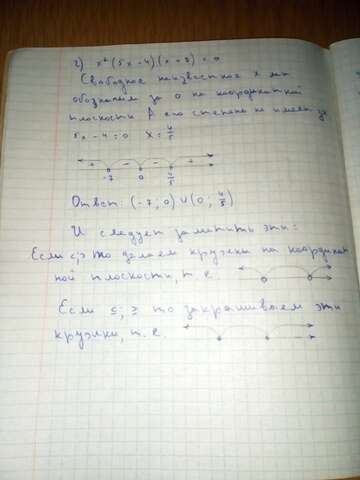 2) x²(5x-4)(x+7)=0
Свободное неизвестное x мы
обозначим за 0 на координатной
плоскости А его степень не имеет зн
5x-4=0 x=4/5
+ - - +
-7 0 4/5
Ответ: (-7; 0) ∪ (0; 4/5)
И следует заметить эти:
Если <;> то делаем кружки на координат
ной плоскости, т. е.
Если ≤; ≥ то закрашиваем эти
кружки, т. е.